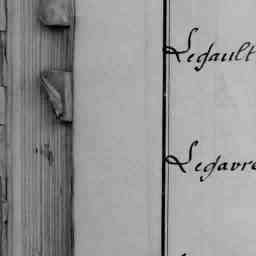 Legault
Legavre